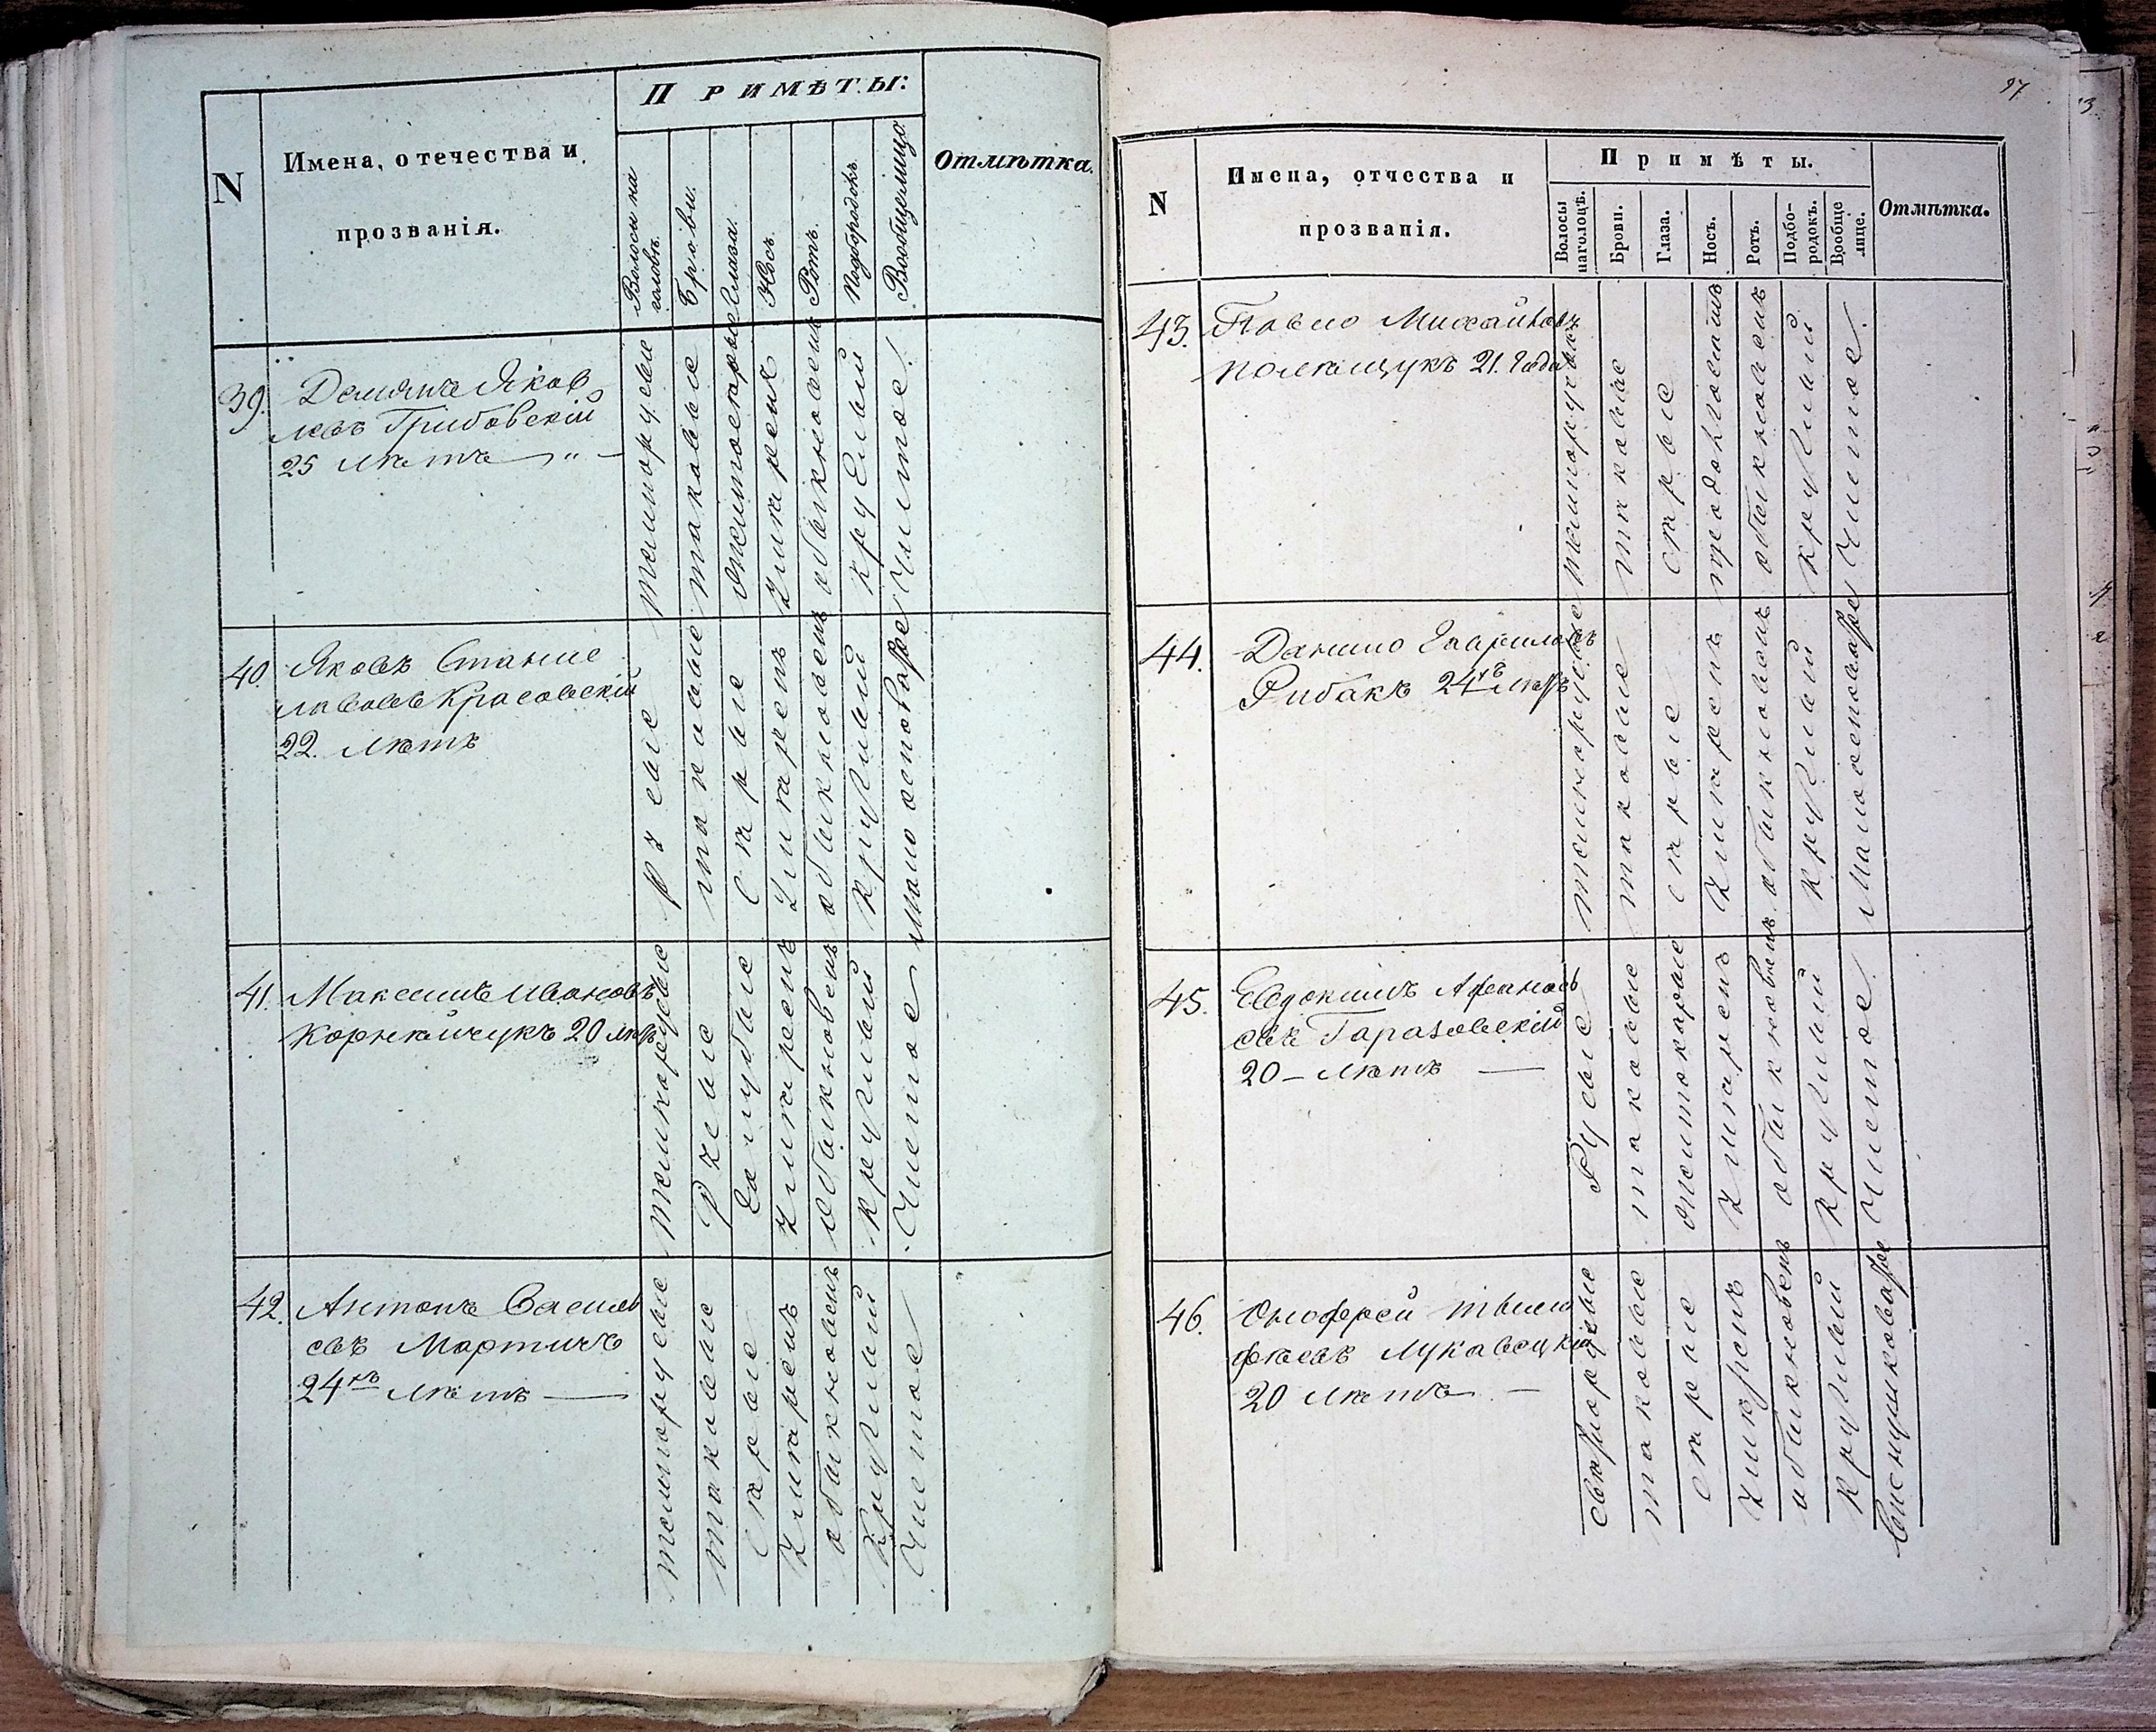 N
Имена, отечества и
прозванія.
ПРИМѢТЫ:
Волосы на
головѣ.
Брови.
Глаза.
Носъ.
Ротъ.
Подбородокъ.
Вообще лицо.
Отмѣтка.
39.
Яков
левъ Грибовскій
25 лѣтъ — „ —
темнорусые
таковые
желтосѣрые
умѣренъ
обыкновенъ
круглый
Чистое.
40.
Яковъ Стание
лавовъ Красовскій
22 лѣтъ
русые
таковые
Сѣрые
умѣренъ
обыкновенъ
круглый
мало осповато
41.
Максимъ Ивановъ
Корнейчукъ 20 лѣтъ
темнорусые
русые
Голубые
умѣренъ
обыкновенъ
круглый
Чистое
42.
Антонъ Василь
евъ Мартичъ
24хъ лѣтъ —
темнорусые
таковые
Сѣрые
умѣренъ
обыкновенъ
круглый
Чистое
97
N
Имена, отчества и
прозванія.
Примѣты.
Волосы
наголовѣ.
Брови.
Глаза.
Носъ.
Ротъ.
Подбо-
родокъ.
Вообще
лице.
Отмѣтка.
43.
Павло Михайловъ
полещукъ 21. Года
темнорусые
таковые
сѣрые
продолговатъ
обыкновенъ
круглый
Чистое.
44.
Данило Гаврилов
Рибакъ 24хъ лѣтъ
темнорусые
таковые
сѣрые
умѣренъ
обыкновенъ
круглый
Малоосповато
45.
Евдокимъ Афанась
евъ Гаразовскій
20 — лѣтъ —
Русые
таковые
желтокарые
умѣренъ
обыкновенъ
круглый
Чистое.
46.
Онофрей
фѣевъ Лукавецкій
20 лѣтъ —
свѣтлорусые
таковые
сѣрые
умѣренъ
обыкновенъ
круглый
Веснушковато